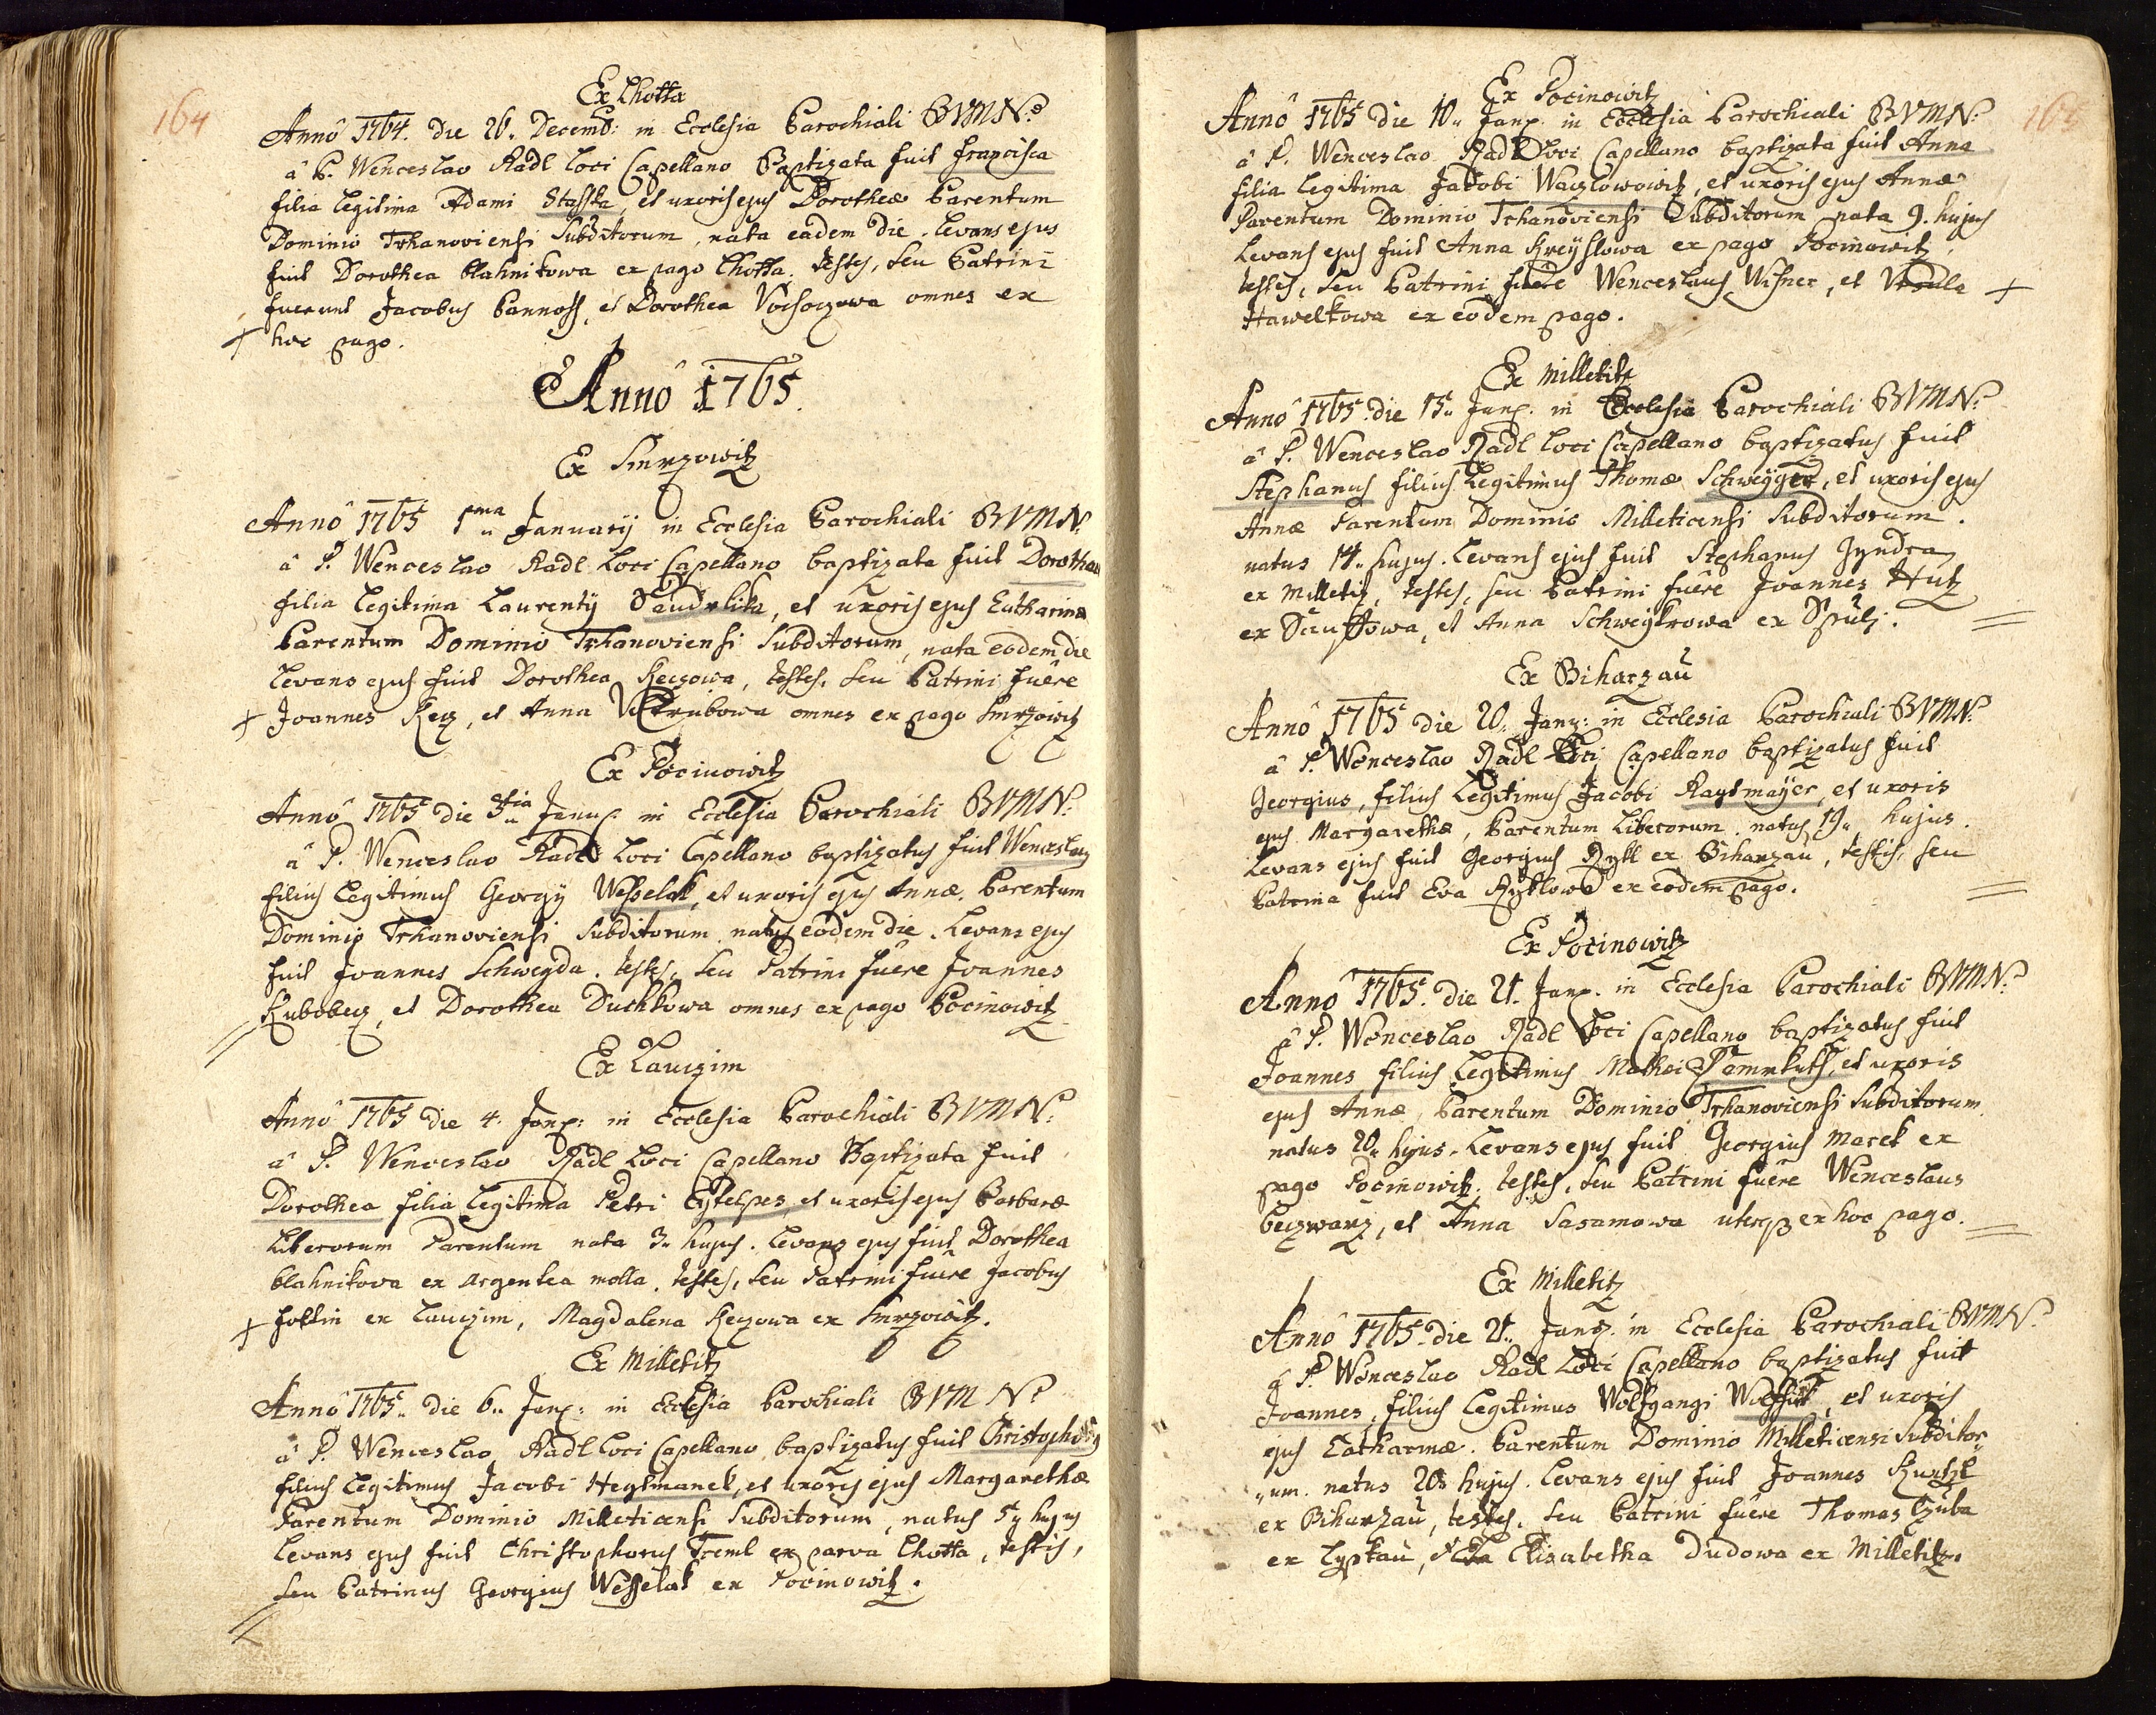 164
Ex Lhotta
Annô 1764. die 26. Decemb: in Ecclesia Parochiali BVMN.
â P. Wenceslao Radl Loci Capellano Baptizata fuit Francisca
filia legitima Adami Stasska, et uxoris ejus Dorotheæ Parentum
Dominio Trhanoviensi Subditorum, nata eadem die. Levans ejus
fuit Dorothea blahnikowa ex pago Lhotta. testes, seu Patrini
fuerunt Jacobus Pannoss, et Dorothea omnes ex
+ hoc pago.
Annô 1765.
Ex Smrzowitz
Annô 1765 1ma January in Ecclesia Parochiali BVMN.
â P. Wenceslao Radl Loci Capellano baptizata fuit Dorothea
filia legitima Laurentÿ et uxoris ejus Catharinæ
Parentum Dominio Trhanoviensi Subditorum, nata eodem die
Levans ejus fuit Dorothea Keczowa, testes, seu Patrini fuêre
+ Joannes Kecz, et Anna omnes ex pago Smrzowitz
Ex Pocinowitz
Annô 1765 die 3tia Janu: in Ecclesia Parochiali BVMN.
â P. Wenceslao Radl Loci Capellano baptizatus fuit Wenceslaus
filius Legitimus Georgÿ Wesselak, et uxoris ejus Annæ. Parentum
Dominio Trhanoviensi Subditorum natus eodem die. Levans ejus
fuit Joannes Schweyda. testes, seu Patrini fuêre Joannes
et Dorothea Duchkowa omnes ex pago Pocinowitz
Ex Lauczim
Annô 1765 die 4. Jany: in Ecclesia Parochiali BVMN.
â P. Wenceslao Radl Loci Capellano Baptizata fuit
Dorothea filia Legitima Petri et uxoris ejus Barbaræ
Liberorum Parentum nata 3. hujus. Levans ejus fuit Dorothea
blahnikowa ex argentea molla. testes, seu Patrini fuêre Jacobus
+ ex Lauczim, Magdalena Keczowa ex Smrzowitz.
Ex Milletitz
Annô 1765. die 6. Jany: in Ecclesia Parochiali BVMN.
â P. Wenceslao Radl Loci Capellano baptizatus fuit Christophorus
filius Legitimus Jacobi Heytmanek, et uxoris ejus Margarethæ
Parentum Dominio Milleticensi Subditorum, natus 5. hujus
Levans ejus fuit Christophorus Treml ex parva Lhotta, testis,
seu Patrinus Georgius Wesselak ex Pocinowitz.
165
Ex Pocinowitz
Annô 1765 die 10. Jany. in Ecclesia Parochiali BVMN.
â P. Wenceslao Radl Loci Capellano baptizata fuit Anna
filia Legitima Jakobi Waczlowowitz, et uxoris ejus Annæ
Parentum Dominio Trhanoviensi Subditorum nata 9. hujus
Levans ejus fuit Anna Kreyslowa ex pago Pocinowitz,
testes, seu Patrini fuêre Wenceslaus Wisner, et Ursula +
Hawelkowa ex eodem pago.
Ex Milletitz
Annô 1765. die 15. Jany. in Ecclesia Parochiali BVMN.
â P. Wenceslao Radl Loci Capellano baptizatus fuit
Stephanus filius Legitimus Thomæ Schweyger, et uxoris ejus
Annæ Parentum Dominio Milleticensi Subditorum.
natus 14. hujus. Levans ejus fuit Stephanus Jyndra
ex Milletitz, testes, seu Patrini fuêre Joannes Hutz
ex et Anna Schweykrowa ex
Ex Biharzau
Annô 1765 die 20. Jany: in Ecclesia Parochiali BVMN.
â P. Wenceslao Radl Loci Capellano baptizatus fuit
Georgius, filius Legitimus Jacobi Raytmaÿer, et uxoris
ejus Margarethæ, Parentum Liberorum. natus 19. hujus.
Levans ejus fuit Georgius Rykl ex Biharzau, testis, seu
Patrina fuit Eva Ryklowa ex eodem pago.
Ex Pocinowitz
Annô 1765. die 21. Jany. in Ecclesia Parochiali BVMN.
â P. Wenceslao Radl Loci Capellano baptizatus fuit
Joannes filius Legitimus Mathæi et uxoris
ejus Annæ, Parentum Dominio Trhanoviensi Subditorum
natus 20. hujus. Levans ejus fuit Georgius Marek ex
pago Pocinowitz, testes, seu Patrini fuêre Wenceslaus
et Anna Sasamowa ex hoc pago.
Ex Milletitz
Annô 1765. die 21. Jany. in Ecclesia Parochiali BVMN.
â P. Wenceslao Radl Loci Capellano baptizatus fuit
Joannes, filius Legitimus Wolfgangi et uxoris
ejus Catharinæ. Parentum Dominio Milleticensi Subditor
um. natus 20. hujus. Levans ejus fuit Joannes
ex Biharzau, testes, seu Patrini fuêre Thomas Czuba
ex Lyskau, et Elisabetha Dudowa ex Milletitz.